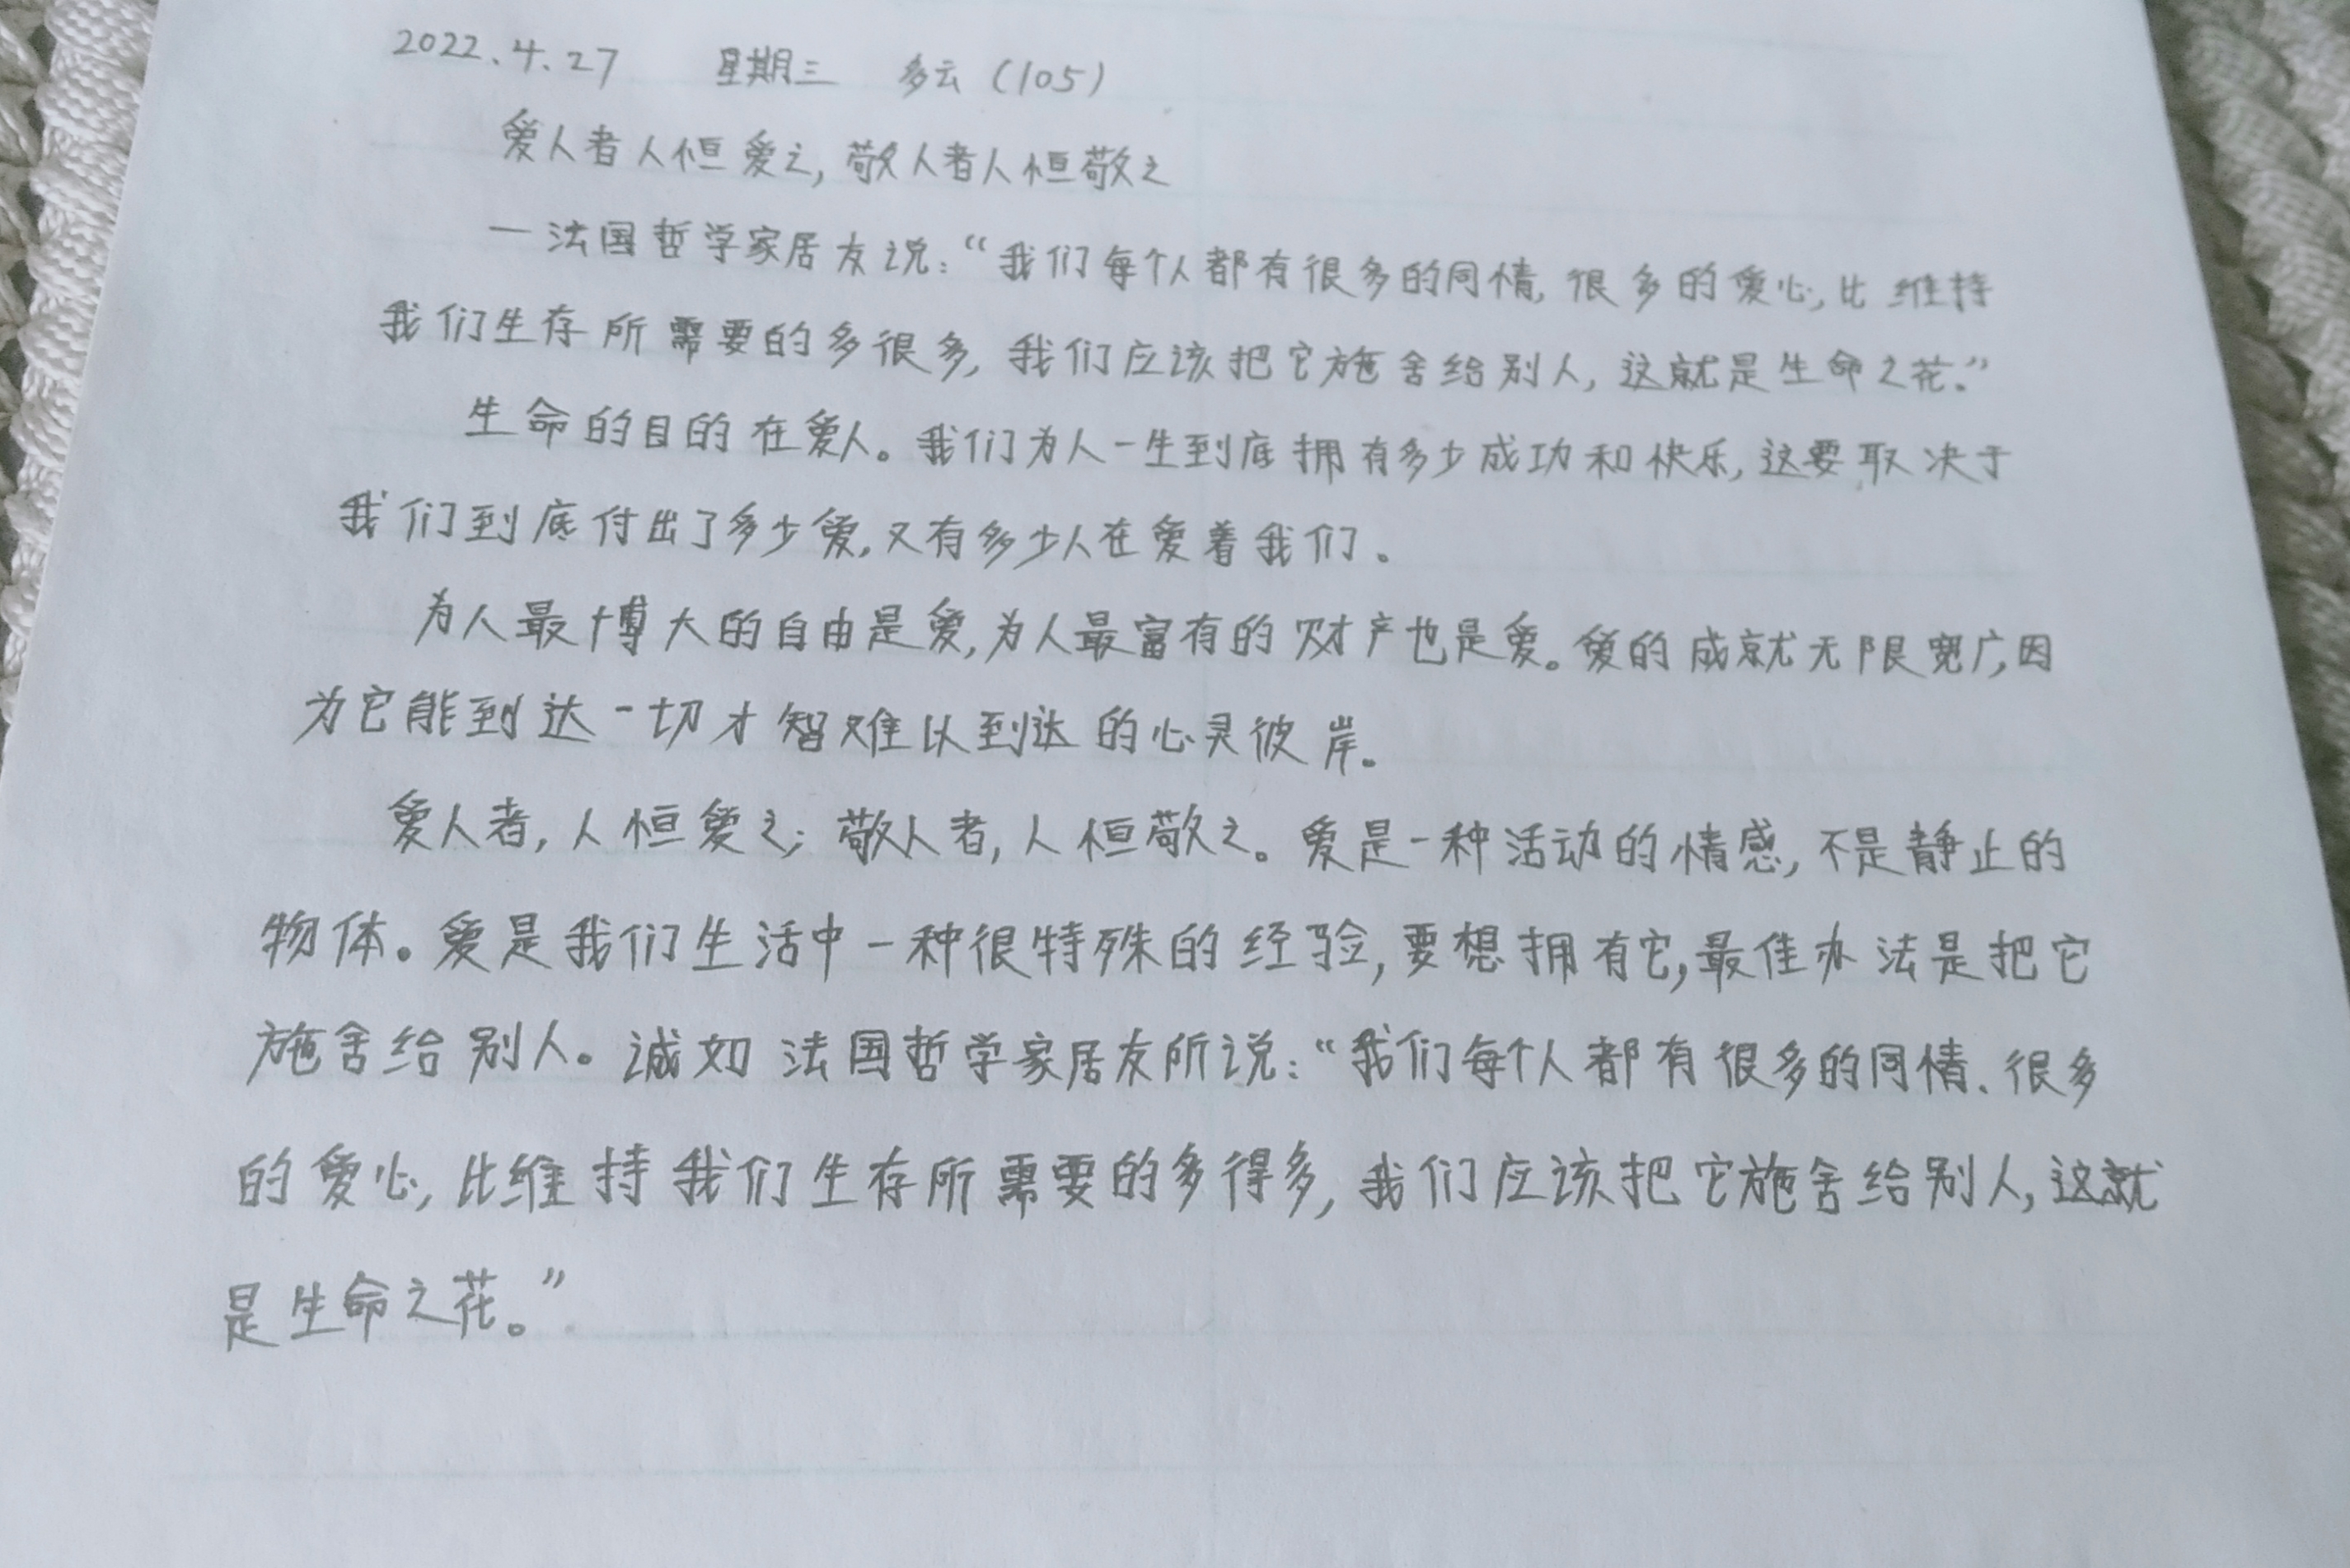 2022.4.27 星期三 多云(105)
爱人者人恒爱之,敬人者人恒敬之
一法国哲学家居友说:“我们每个人都有很多的同情,很多的爱心,比维持
我们生存所需要的多很多,我们应该把它施舍给别人,这就是生命之花.”
生命的目的在爱人。我们为人一生到底拥有多少成功和快乐,这要取决于
我们到底付出了多少爱,又有多少人在爱着我们。
为人最博大的自由是爱,为人最富有的财产也是爱。爱的成就无限宽广,因
为它能到达一切才智难以到达的心灵彼岸。
爱人者,人恒爱之;敬人者,人恒敬之。爱是一种活动的情感,不是静止的
物体。爱是我们生活中一种很特殊的经验,要想拥有它,最佳办法是把它
施舍给别人。诚如法国哲学家居友所说:“我们每个人都有很多的同情、很多
的爱心,比维持我们生存所需要的多得多,我们应该把它施舍给别人,这就
是生命之花。”